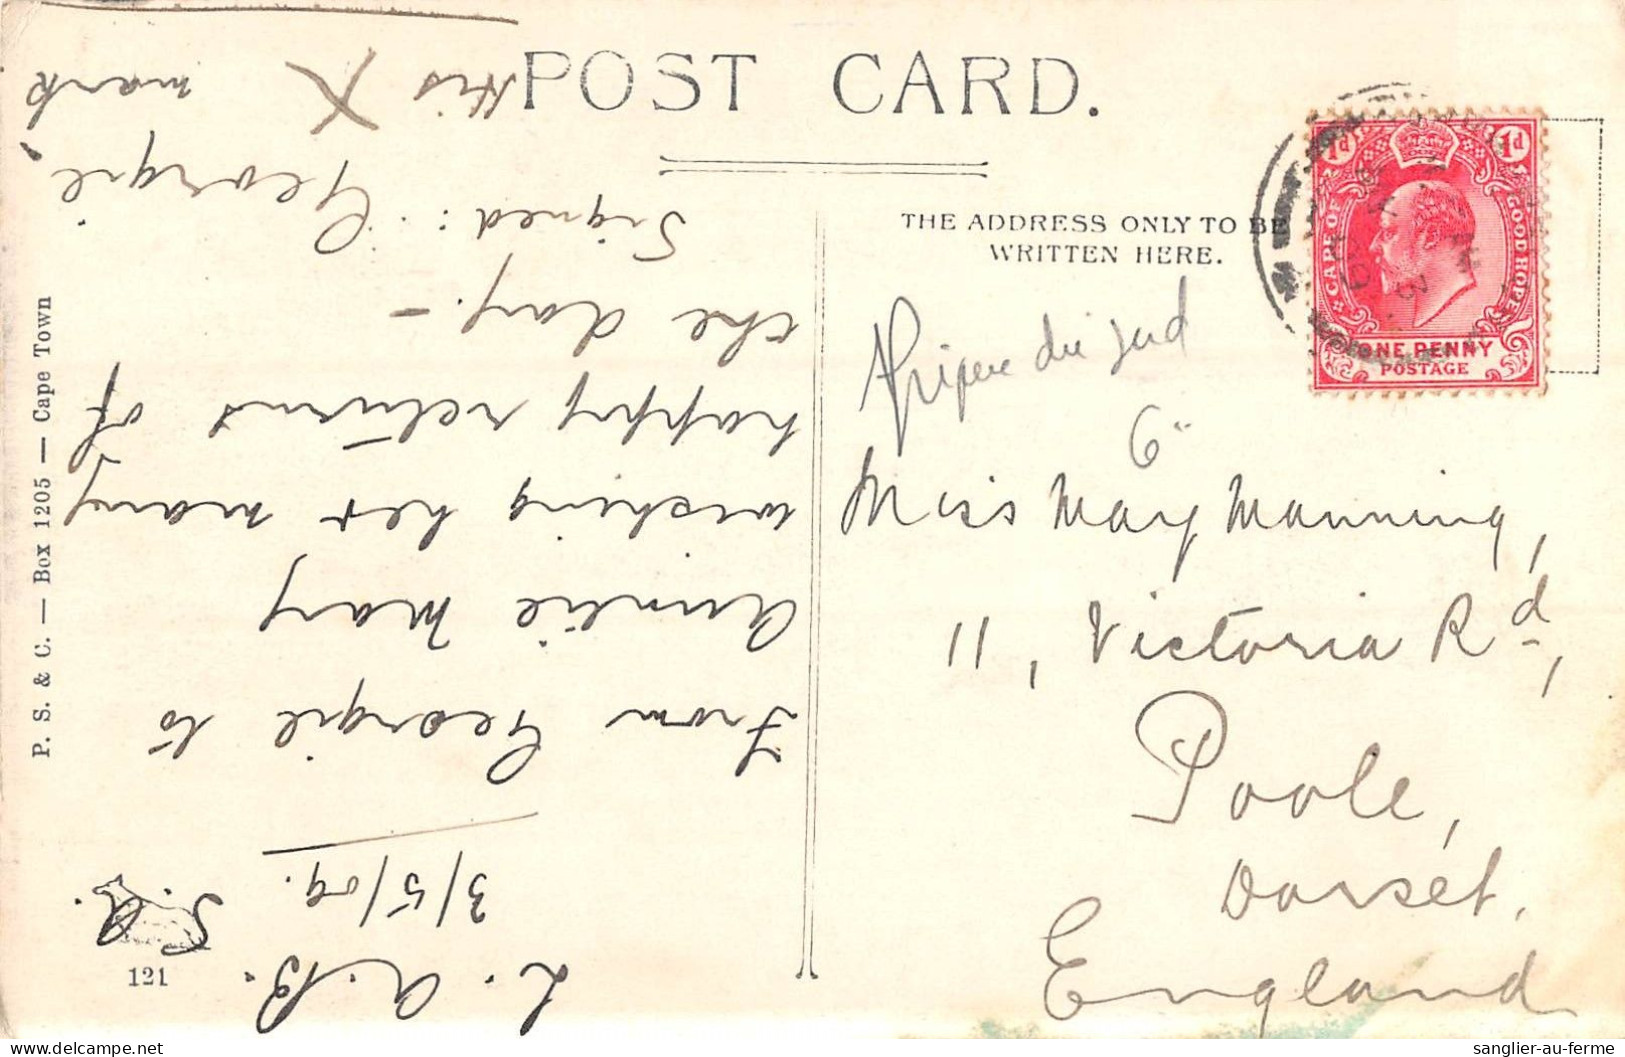 POST CARD.
THE ADDRESS ONLY TO BE
WRITTEN HERE.
1d 1d
CAPE OF GOOD HOPE
ONE PENNY
POSTAGE
Afrique du Sud
6"
Miss May Manning,
11, Victoria Rd,
Poole,
Dorset.
England
L. A. B. S. A.
3/5/09.
From Georgie to
Auntie Mary
wishing her many
happy returns of
the day. –
Signed: Georgie,
His X mark
P. S. & C. — Box 1205 — Cape Town
121
sanglier-au-ferme